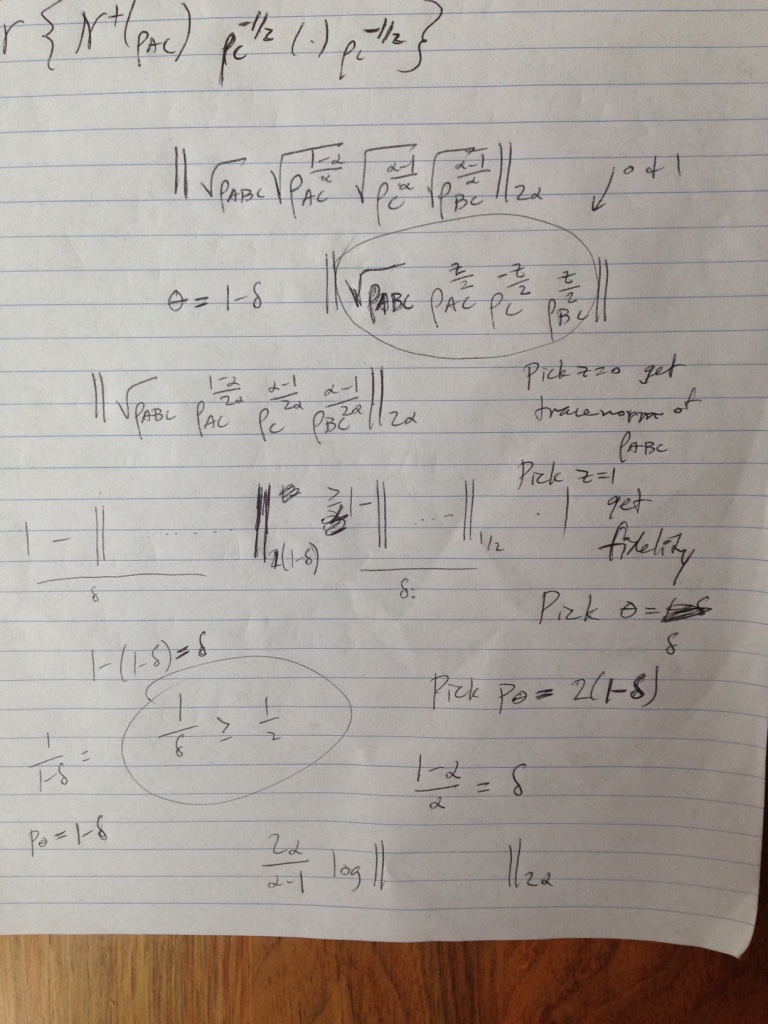 r { N^†(ρ_AC) ρ_C^{-1/2} (·) ρ_C^{-1/2} }
|| √ρ_ABC √ρ_AC^{(1-α)/α} √ρ_C^{(α-1)/α} √ρ_BC^{(α-1)/α} ||_{2α}
0 + 1
θ = 1-δ || √ρ_ABC ρ_AC^{z/2} ρ_C^{-z/2} ρ_BC^{z/2} ||
|| √ρ_ABC ρ_AC^{(1-α)/2α} ρ_C^{(α-1)/2α} ρ_BC^{(α-1)/2α} ||_{2α}
Pick z=0 get
trace norm of
ρ_ABC
Pick z=1
get
fidelity
1 - || ........ ||_{2(1-δ)} ≥ 1 - || .... ||_{1/2} . |
δ δ:
Pick θ =
δ
1-(1-δ)=δ
Pick p_θ = 2(1-δ)
1/δ ≥ 1/2
1/(1-δ) =
(1-α)/α = δ
p_θ = 1-δ
2α/(α-1) log || ||_{2α}